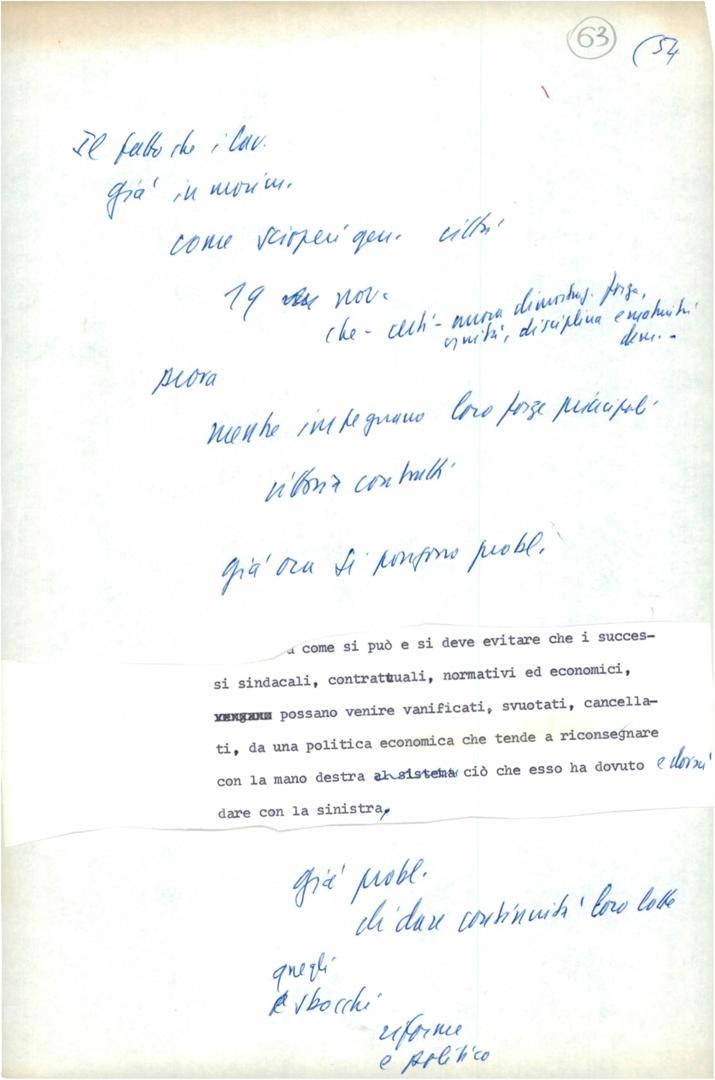 63
(54
Il fatto che i lav.
già in movim.
come scioperi gen. città
19 nov.
che - certi - nuova dimostraz. forza,
unità, disciplina e maturità
dem. -
prova
mentre impegnano loro forze principali
vittoria contratti
già ora si pongono probl.
come si può e si deve evitare che i succes-
si sindacali, contrattuali, normativi ed economici,
possano venire vanificati, svuotati, cancella-
ti, da una politica economica che tende a riconsegnare
con la mano destra al sistema ciò che esso ha dovuto e dovrà
dare con la sinistra,
già probl.
di dare continuità loro lotte
quegli
sbocchi
riforme
e politico